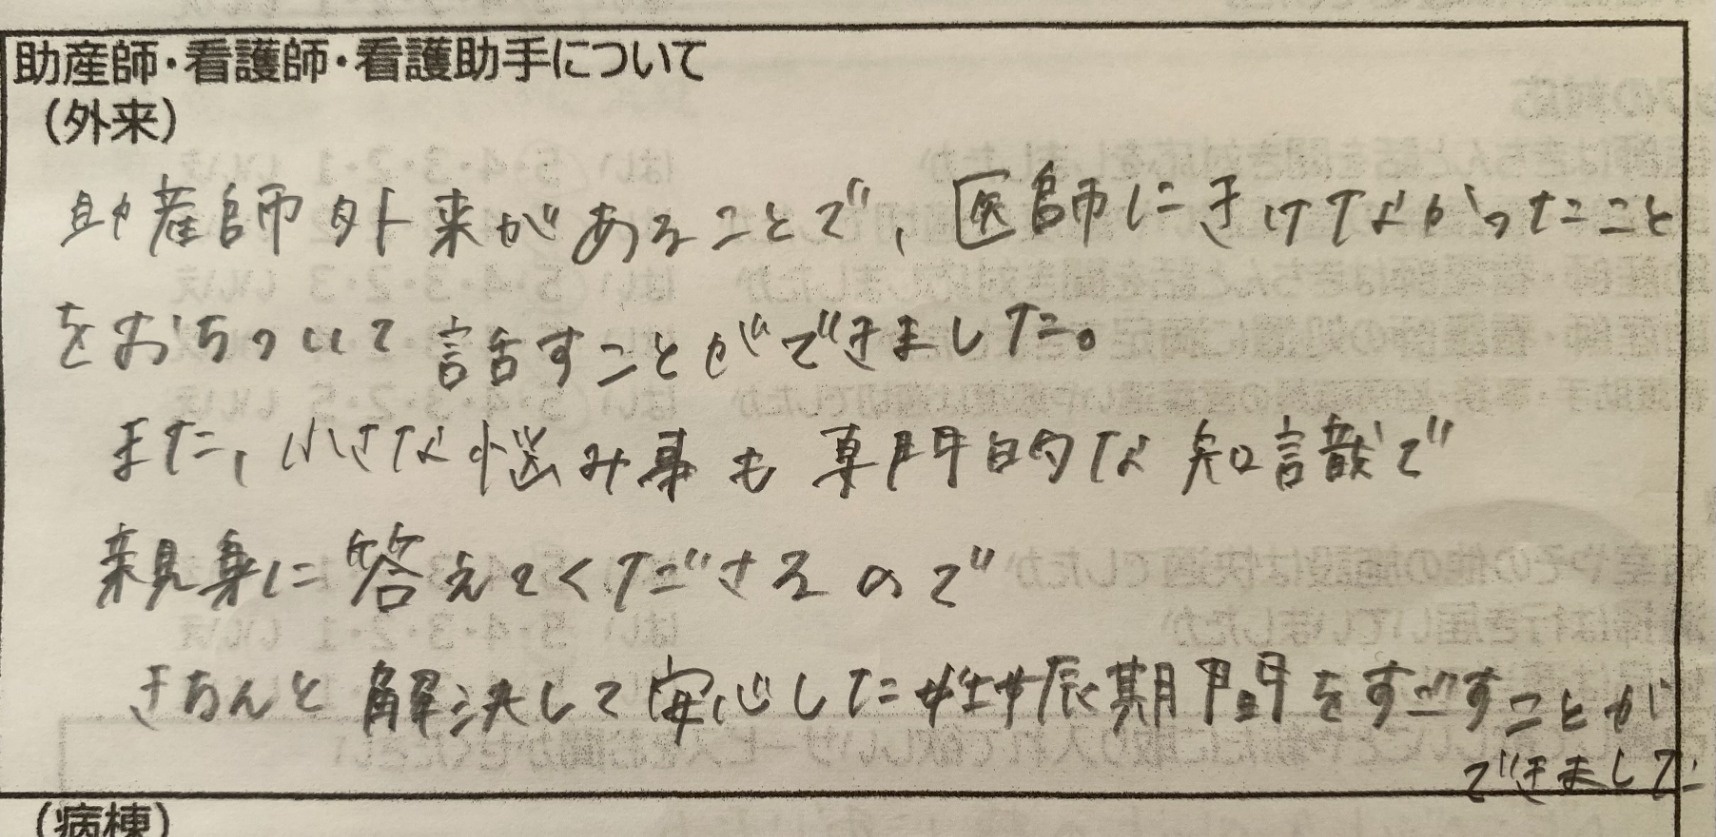 助産師・看護師・看護助手について
（外来）
助産師外来があることで、医師にきけなかったこと
をおちついて話すことができました。
また、小さな悩み事も専門的な知識で
親身に答えてくださるので
きちんと解決して安心した妊娠期間をすごすことが
できました
（病棟）